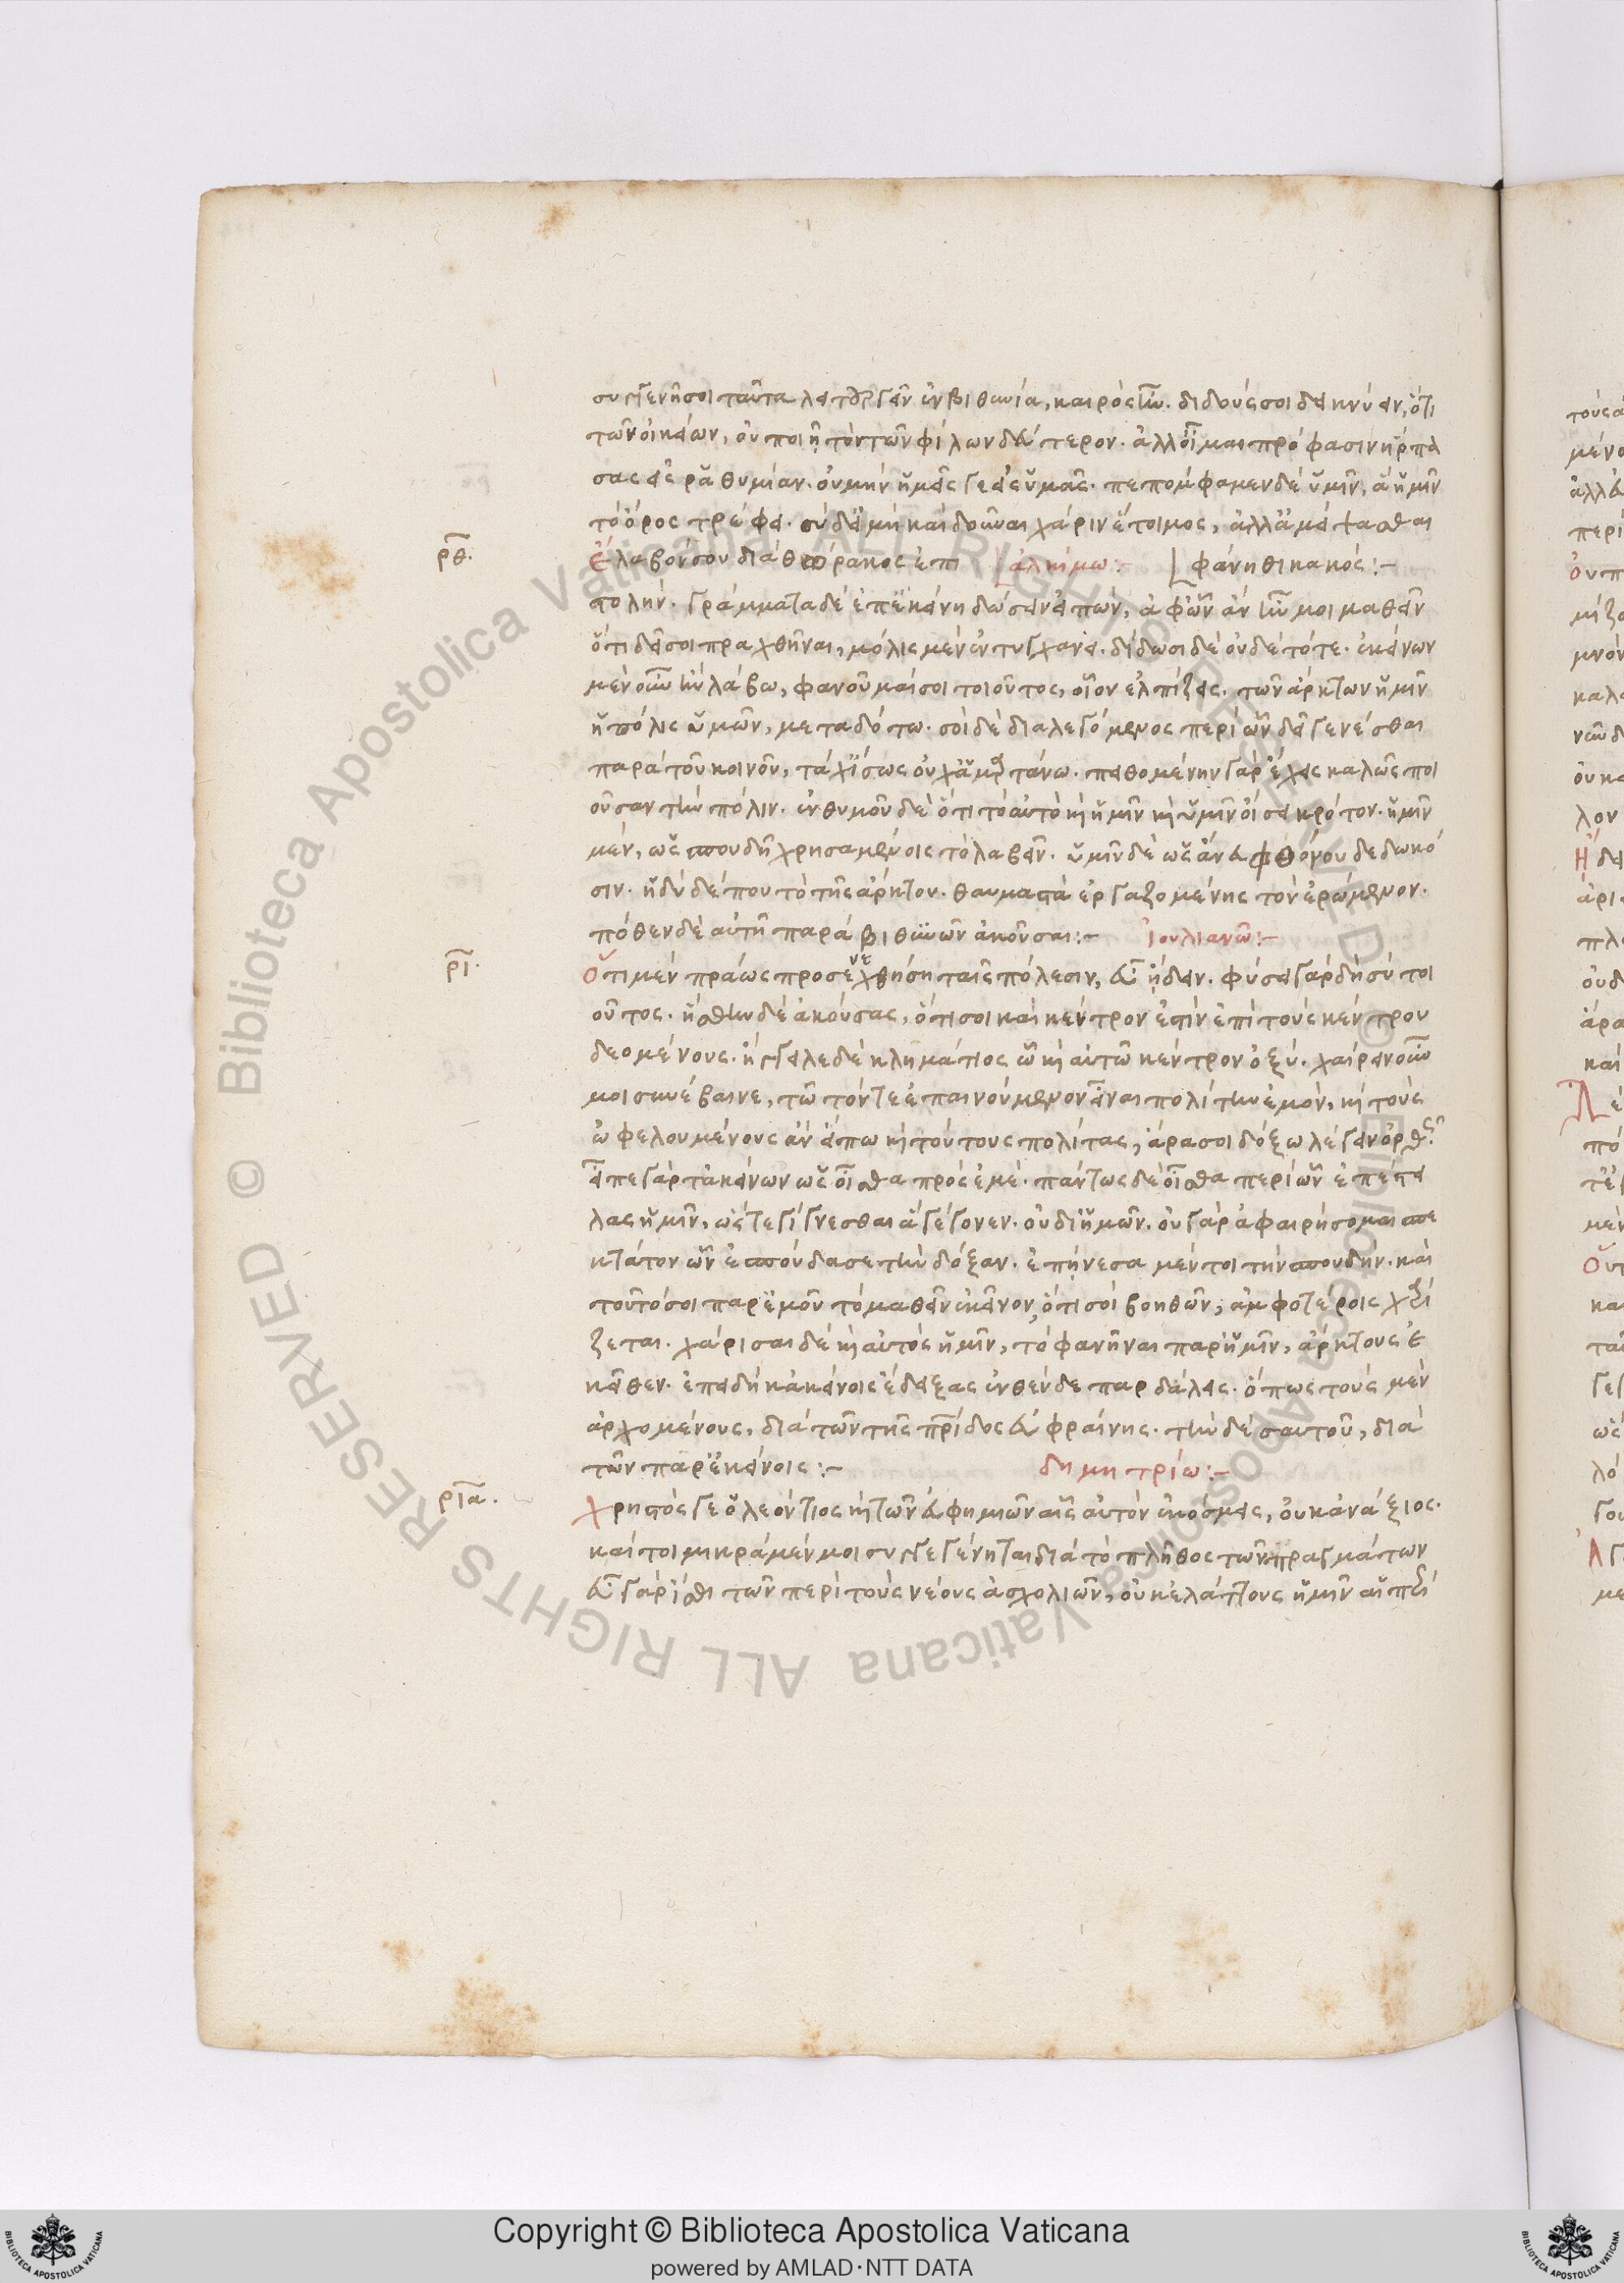 συγγενῆσοι ταῦτα λειτουργεῖν ἐν βιθυνία, καιρὸς ἦν. διδοὺς σοι δεικνύειν, ὅτι
τῶν οἰκείων, οὐ ποιῇ τὸν τῶν φίλων δεύτερον. ἀλλ' οἶμαι πρόφασιν ἥρπα
σας εἰς ῥαθυμίαν. οὐ μὴν ἡμεῖς γε εἰς ὑμᾶς. πεπόμφαμεν δὲ ὑμῖν, ἃ ἡμῖν
τὸ ὄρος τρέφει. σὺ δ' εἰ μὴ καὶ δοῦναι χάριν ἕτοιμος, ἀλλ' ἀμείψασθαι
ρθ.
ἔλαβόν σου διὰ θωράκος ἐπι ἀλκίμω:- φάνηθι κακός:-
στολήν. γράμματα δὲ ἐπ' ἐκείνη δώσειν εἰπών, ἀφ' ὧν ἂν ἦν μοι μαθεῖν
ὅτι δεῖ σοι πραχθῆναι, μόλις μὲν ἐντυγχάνει. δίδωσι δὲ οὐδὲ τότε. ἐκείνων
μὲν οὖν ἢν λάβω, φανοῦμαί σοι τοιοῦτος, οἷον ἐλπίζεις. τῶν ἄρκτων ἡμῖν
ἡ πόλις ὑμῶν, μεταδότω. σοὶ δὲ διαλεγόμενος περὶ ὧν δεῖ γενέσθαι
παρὰ τοῦ κοινοῦ, τάχ' ἴσως οὐχ ἁμαρτάνω. πειθομένην γὰρ ἔχεις καλῶς ποι
οῦσαν τὴν πόλιν. ἐνθυμοῦ δὲ ὅτι τὸ αὐτὸ καὶ ἡμῖν καὶ ὑμῖν οἴσει κρότον. ἡμῖν
μὲν, ὡς σπουδῆ χρησαμένοις τὸ λαβεῖν. ὑμῖν δὲ ὡς ἄνευ φθόνου δεδωκό
σιν. ἡδὺ δέ που τὸ τῆς ἄρκτου. θαυμαστὰ ἐργαζομένης τὸν ἐρώμενον.
πόθεν δὲ αὐτὴ παρὰ βιθυνῶν ἀκοῦσαι:- Ἰουλιανῶ:-
ρι.
Ὅτι μὲν πράως προσενεχθήση ταῖς πόλεσιν, εὖ ᾔδειν. φύσει γὰρ δὴ σὺ τοι
οῦτος. ᾐσθην δὲ ἀκούσας, ὅτι σοι καὶ κέντρον ἐστὶν ἐπὶ τοὺς κέντρου
δεομένους. ἤγγελε δὲ κλημάτιος ᾧ καὶ αὐτῶ κέντρον ὀξύ. χαίρειν οὖν
μοι συνέβαινε, τῶ τόν τε ἐπαινούμενον εἶναι πολίτην ἐμόν, καὶ τοὺς
ὠφελουμένους ἂν εἴπω καὶ τούτους πολίτας, ἆρά σοι δόξω λέγειν ὀρθῶς;
εἴπερ γὰρ τἀκείνων ὡς οἶσθα πρὸς ἐμέ. πάντως δὲ οἶσθα περὶ ὧν ἐπέστει
λας ἡμῖν, ὥς τε γίγνεσθαι ἃ γέγονεν. οὐ δι' ἡμῶν. οὐ γὰρ ἀφαιρήσομαι σπε
κτάτον ὧν ἐσπούδασε τὴν δόξαν. ἐπῄνεσα μέντοι τὴν σπουδήν. καὶ
τοῦτό σοι παρ' ἐμοῦ τὸ μαθεῖν ἐκεῖνον, ὅτι σοὶ βοηθῶν, ἀμφοτέροις χαρί
ζεται. χάρισαι δὲ καὶ αὐτὸς ἡμῖν, τὸ φανῆναι παρ' ἡμῖν, ἄρκτους ἐ
κεῖθεν. ἐπειδὴ κἀκείνοις ἔδειξας ἐνθένδε παρδάλεις. ὅπως τοὺς μὲν
ἀρχομένους, διὰ τῶν τῆς πατρίδος εὐφραίνης. τὴν δὲ σαυτοῦ, διὰ
τῶν παρ' ἐκείνοις:- δημητρίω:-
ρια.
Χρηστός γε ὁ λεόντιος καὶ τῶν εὐφημιῶν αἷς αὐτὸν ἐκόσμεις, οὐκ ἀνάξιος.
καίτοι μικρὰ μέν μοι συγγεγένηται διὰ τὸ πλῆθος τῶν πραγμάτων
εὖ γὰρ ἴσθι τῶν περὶ τοὺς νέους ἀσχολιῶν, οὐκ ἐλάττους ἡμῖν αἱ περὶ
Copyright © Biblioteca Apostolica Vaticana
powered by AMLAD·NTT DATA